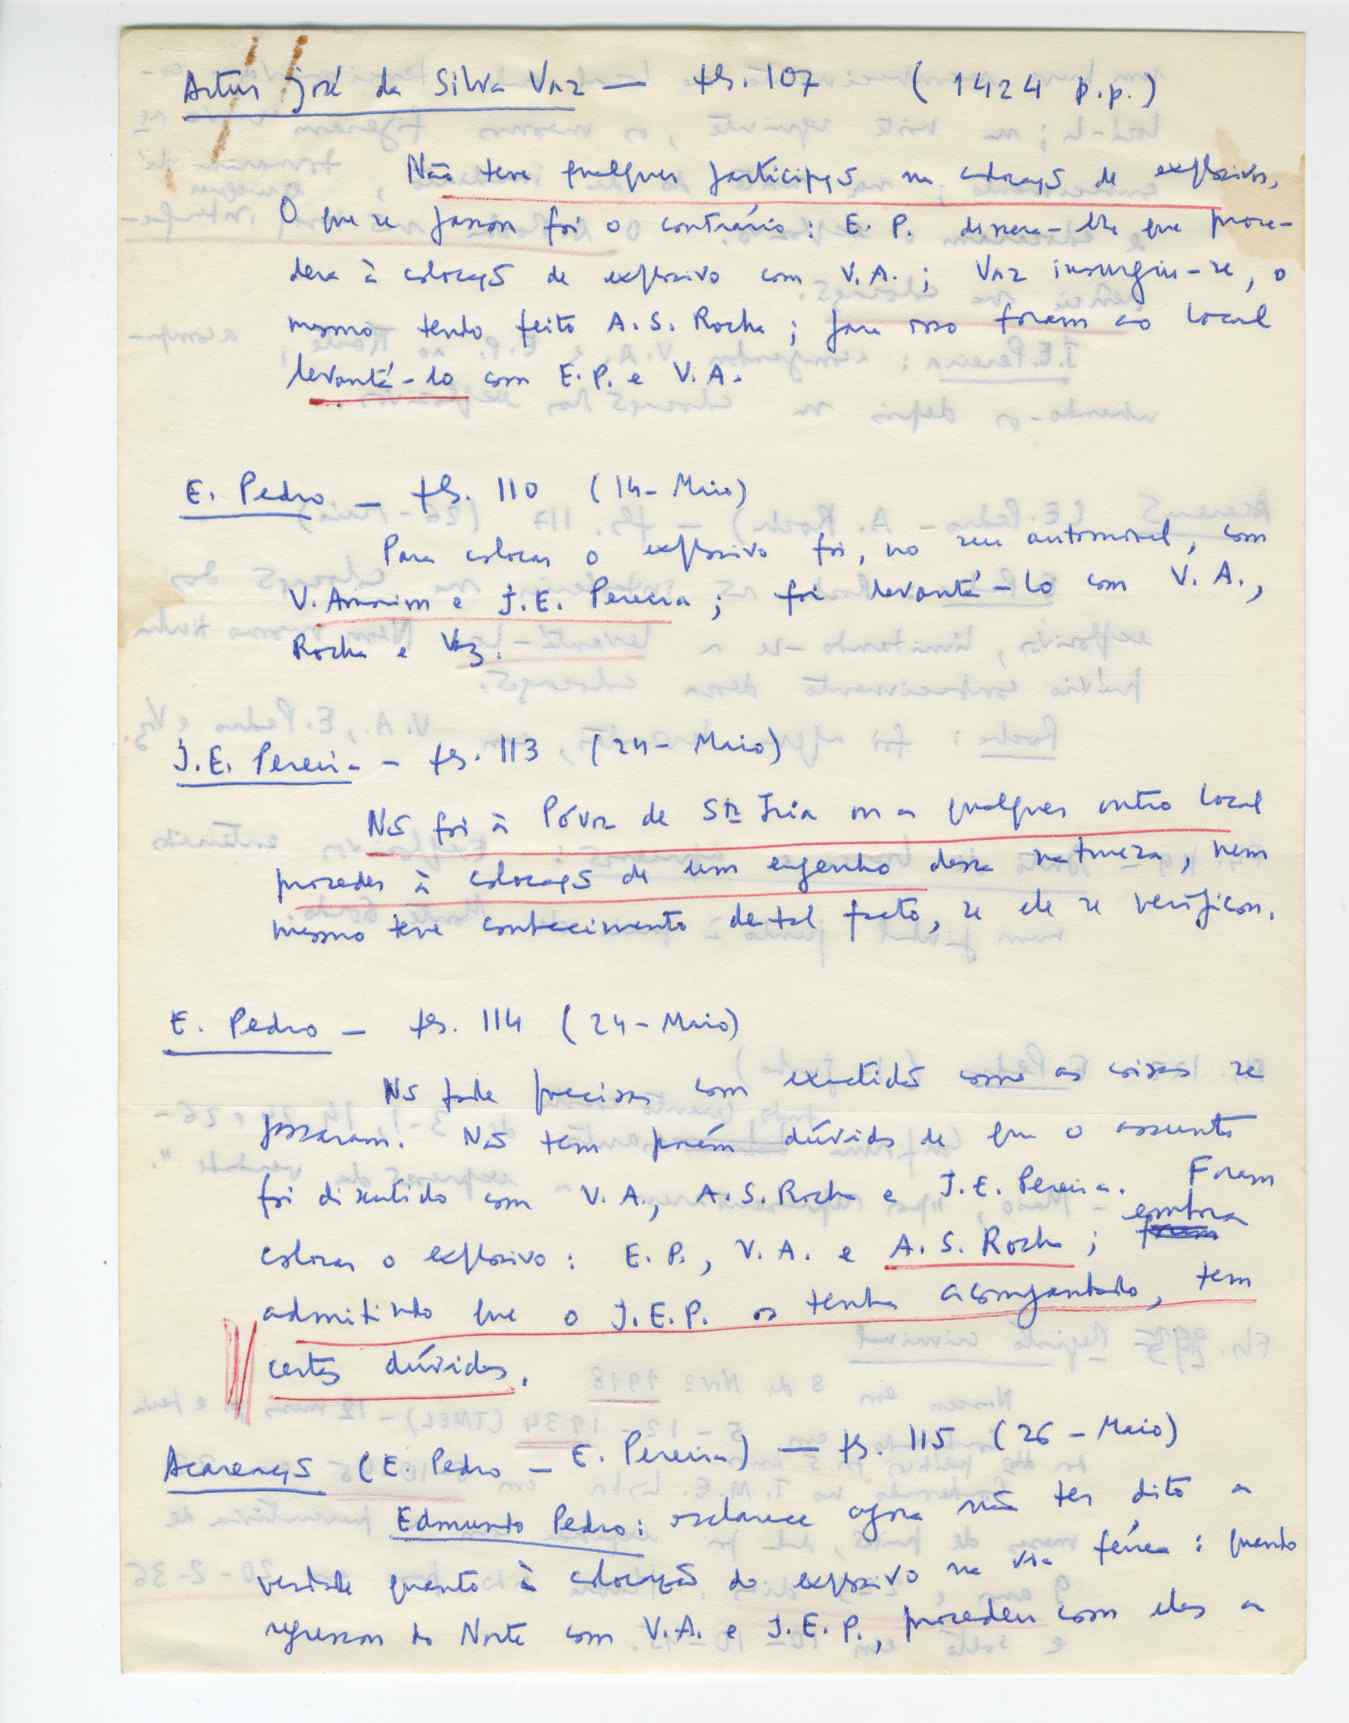 Artur José da Silva Vaz — fls. 107 (1424 p.p.)
Não teve qualquer participação na colocação de explosivos.
O que se passou foi o contrário: E. P. dissera-lhe que proce-
dera à colocação de explosivo com V.A.; Vaz insurgiu-se, o
mesmo tendo feito A. S. Rocha; para isso foram ao local
levantá-lo com E.P. e V.A.
E. Pedro — fls. 110 (14-Maio)
Para colocar o explosivo foi, no seu automóvel, com
V. Amorim e J.E. Pereira; foi levantá-lo com V.A.,
Rocha e Vaz.
J.E. Pereira — fls. 113 (24-Maio)
Não foi à Póvoa de Sta Iria ou a qualquer outro local
proceder à colocação de um engenho dessa natureza, nem
mesmo teve conhecimento de tal facto, se ele se verificou.
E. Pedro — fls. 114 (24-Maio)
Não pode precisar com exactidão como as coisas se
passaram. Não tem porém dúvida de que o assunto
foi discutido com V.A., A.S. Rocha e J.E. Pereira. Foram
colocar o explosivo: E.P., V.A. e A.S. Rocha; embora
admitindo que o J.E.P. os tenha acompanhado, tem
certas dúvidas.
Acareação (E. Pedro — E. Pereira) — fls. 115 (26-Maio)
Edmundo Pedro: esclarece agora não ter dito a
verdade quanto à colocação do explosivo na via férrea: quando
regressou do Norte com V.A. e J.E.P., procedeu com eles a